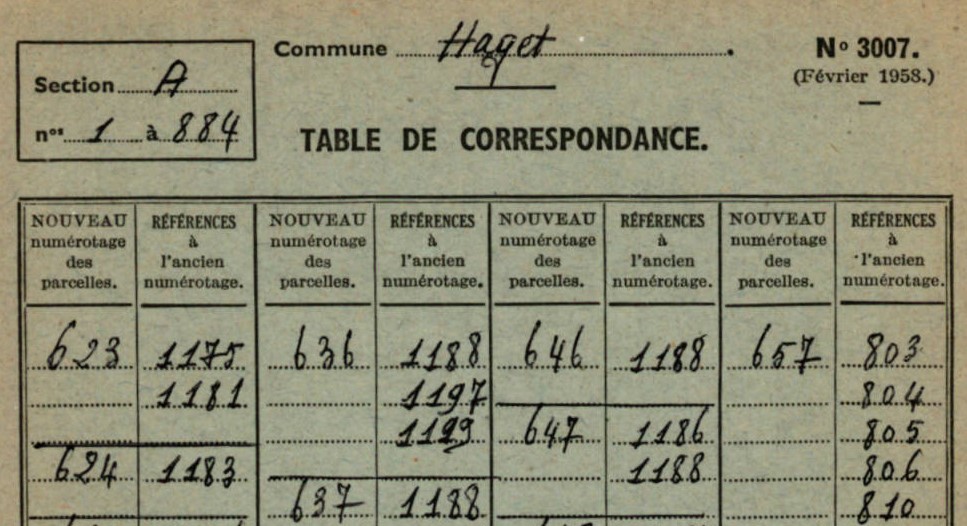 Commune Haget. Nº 3007.
Section A (Février 1958.)
nos 1 à 884
TABLE DE CORRESPONDANCE.
NOUVEAU numérotage des parcelles. RÉFÉRENCES à l'ancien numérotage. NOUVEAU numérotage des parcelles. RÉFÉRENCES à l'ancien numérotage. NOUVEAU numérotage des parcelles. RÉFÉRENCES à l'ancien numérotage. NOUVEAU numérotage des parcelles. RÉFÉRENCES à l'ancien numérotage.
623 1175 636 1188 646 1188 657 803
1181 1197 804
1199 647 1186 805
624 1183 1188 806
637 1188 810